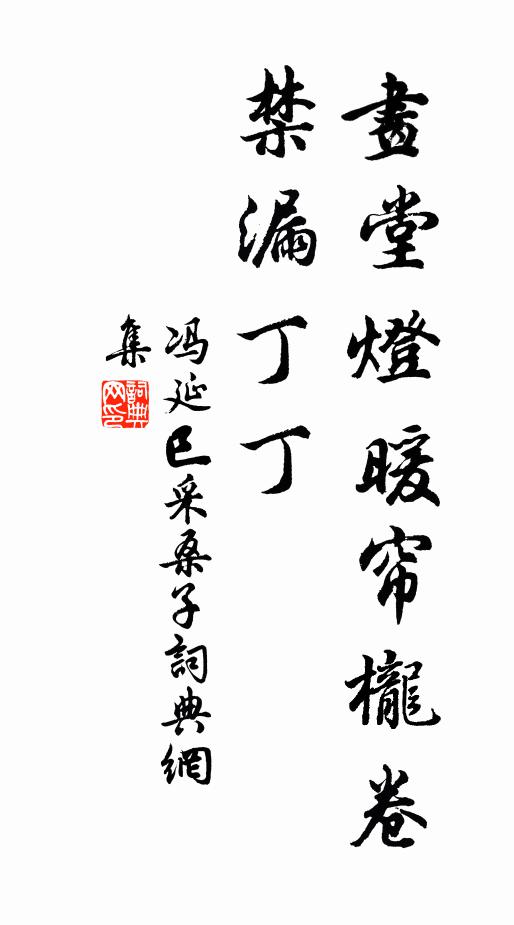 畫堂燈暖帘櫳卷
禁漏丁丁
冯延巳采桑子詞典網
集
詞典
网印